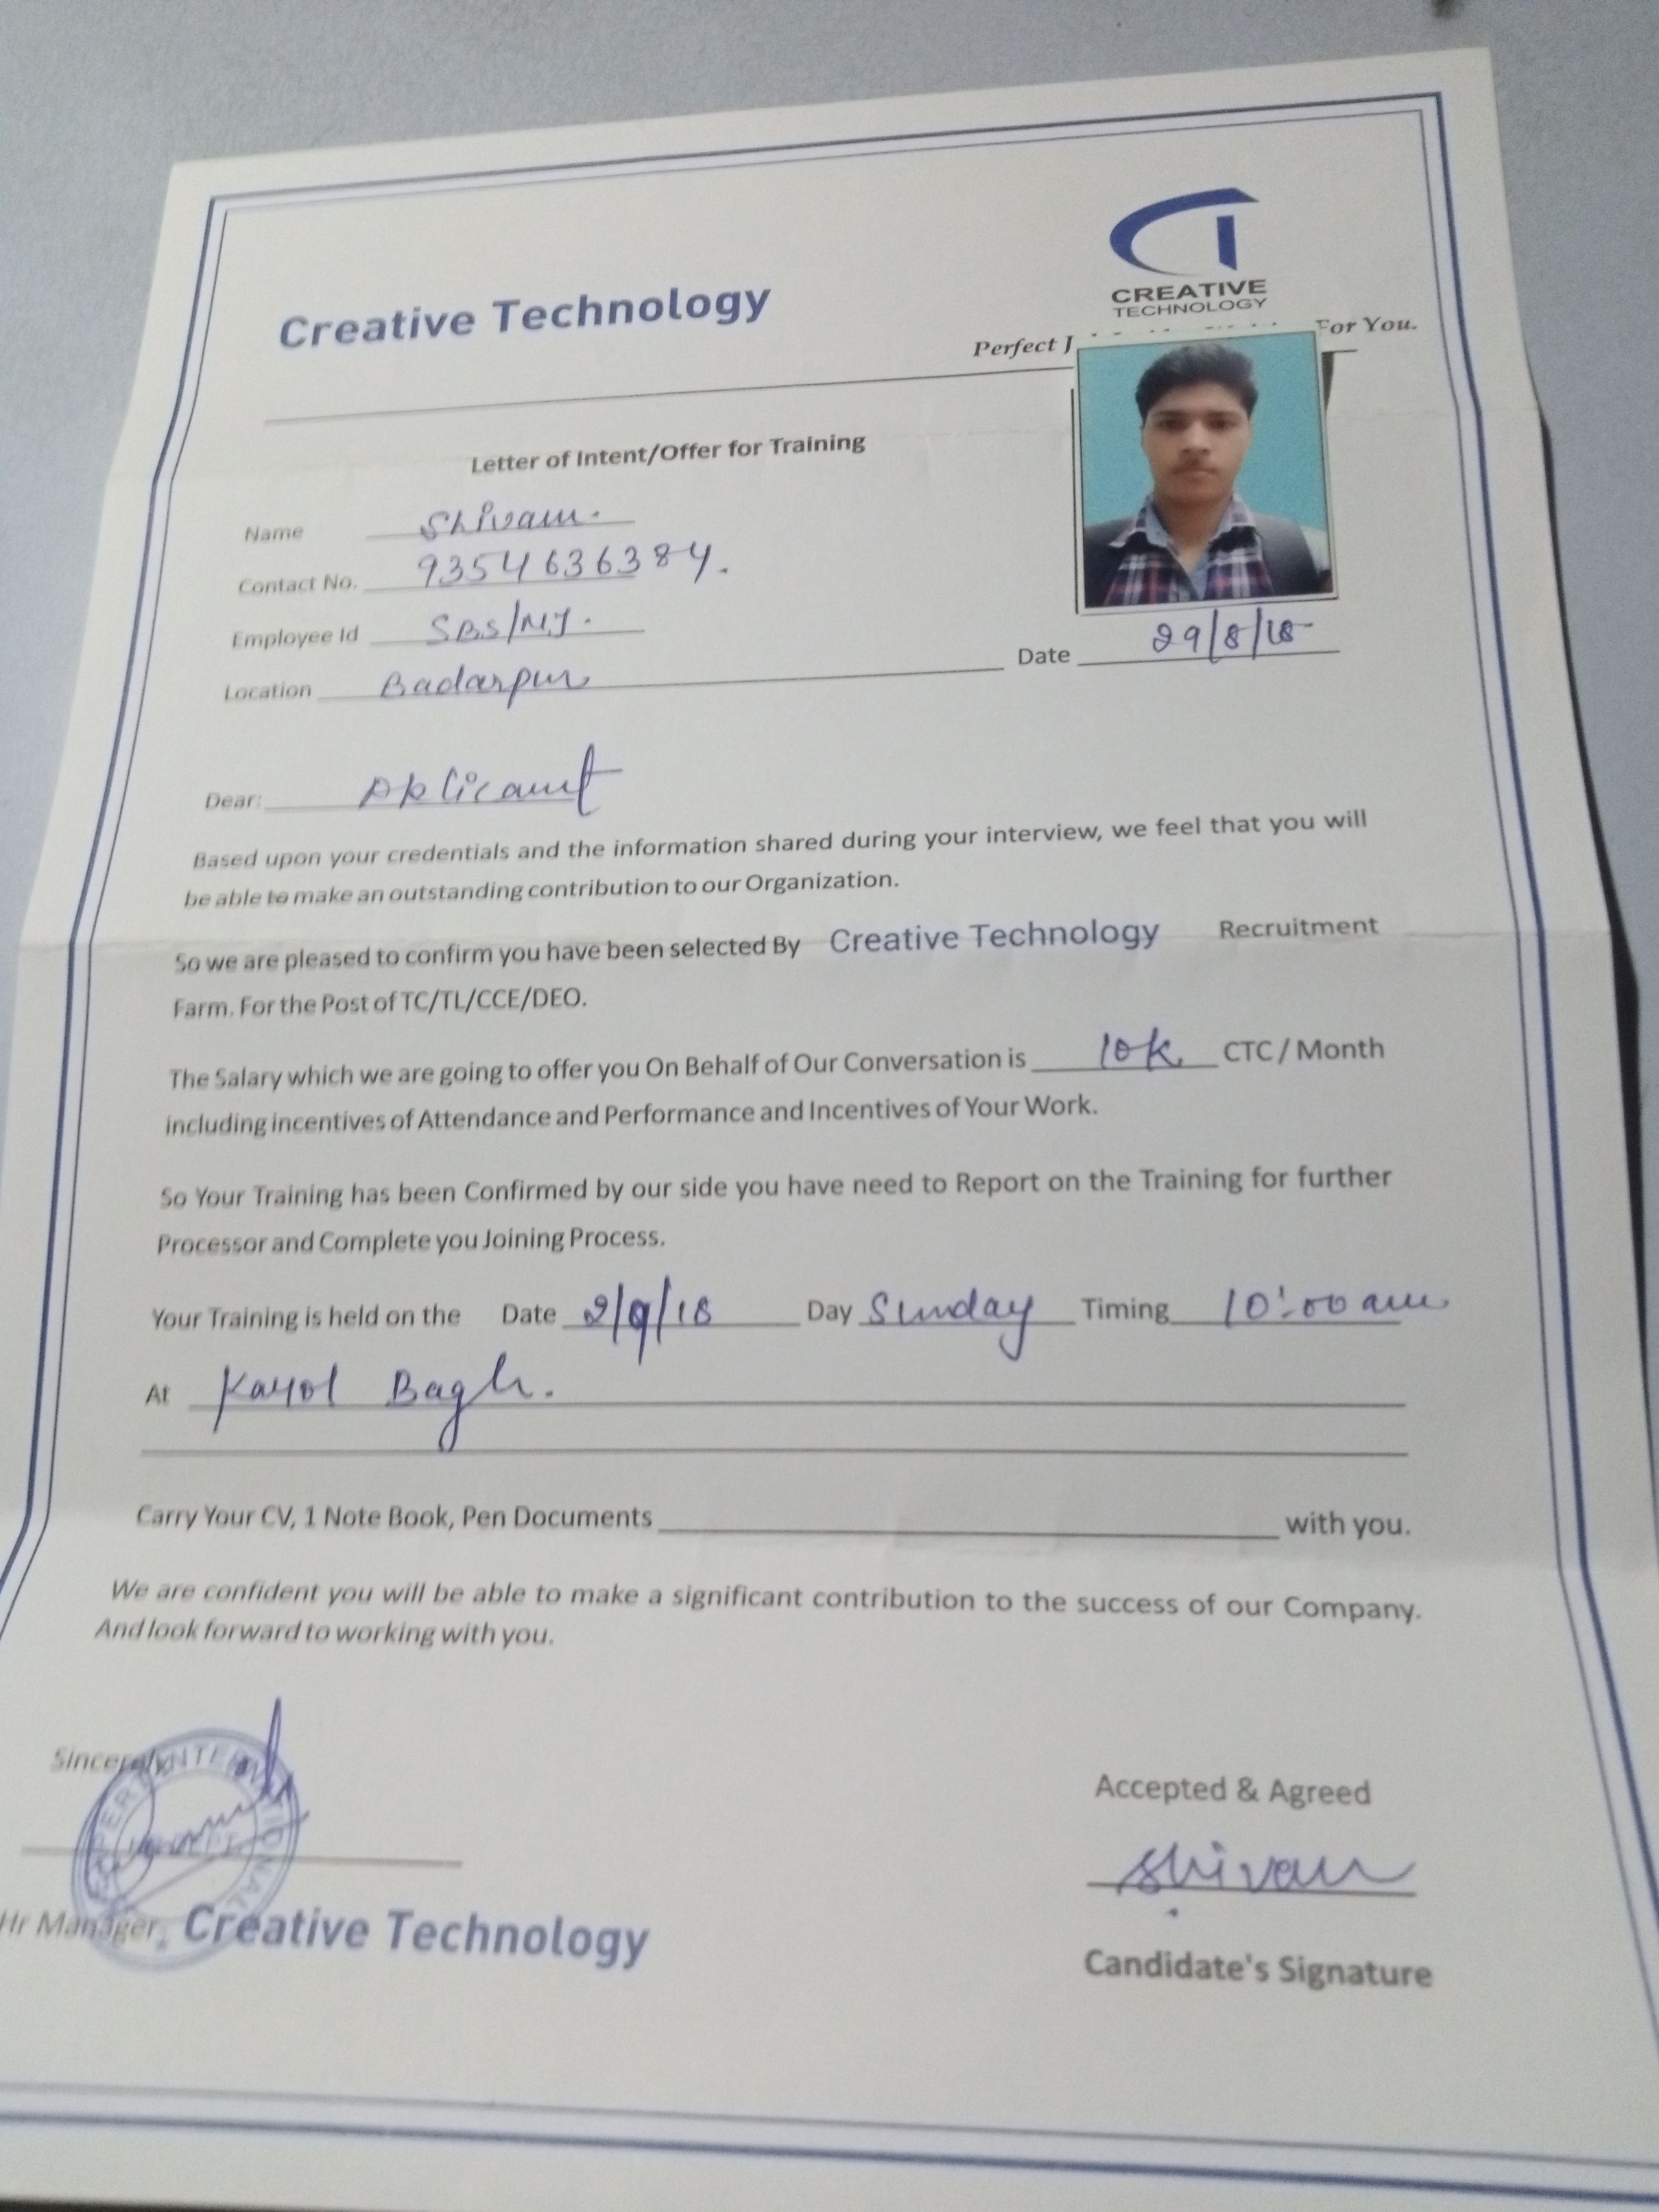 Creative Technology
CREATIVE
TECHNOLOGY
Perfect J For You.
Letter of Intent/Offer for Training
Name Shivam.
Contact No. 9354636384.
Employee Id SBS/MJ.
Location Badarpur
Date 29/8/18
Dear: Applicant
Based upon your credentials and the information shared during your interview, we feel that you will
be able to make an outstanding contribution to our Organization.
So we are pleased to confirm you have been selected By Creative Technology Recruitment
Farm. For the Post of TC/TL/CCE/DEO.
The Salary which we are going to offer you On Behalf of Our Conversation is 10k CTC / Month
including incentives of Attendance and Performance and Incentives of Your Work.
So Your Training has been Confirmed by our side you have need to Report on the Training for further
Processor and Complete you Joining Process.
Your Training is held on the Date 2/9/18 Day Sunday Timing 10:00 am
At Karol Bagh.
Carry Your CV, 1 Note Book, Pen Documents with you.
We are confident you will be able to make a significant contribution to the success of our Company.
And look forward to working with you.
Sincerely
Accepted & Agreed
Shivam
Hr Manager, Creative Technology
Candidate's Signature